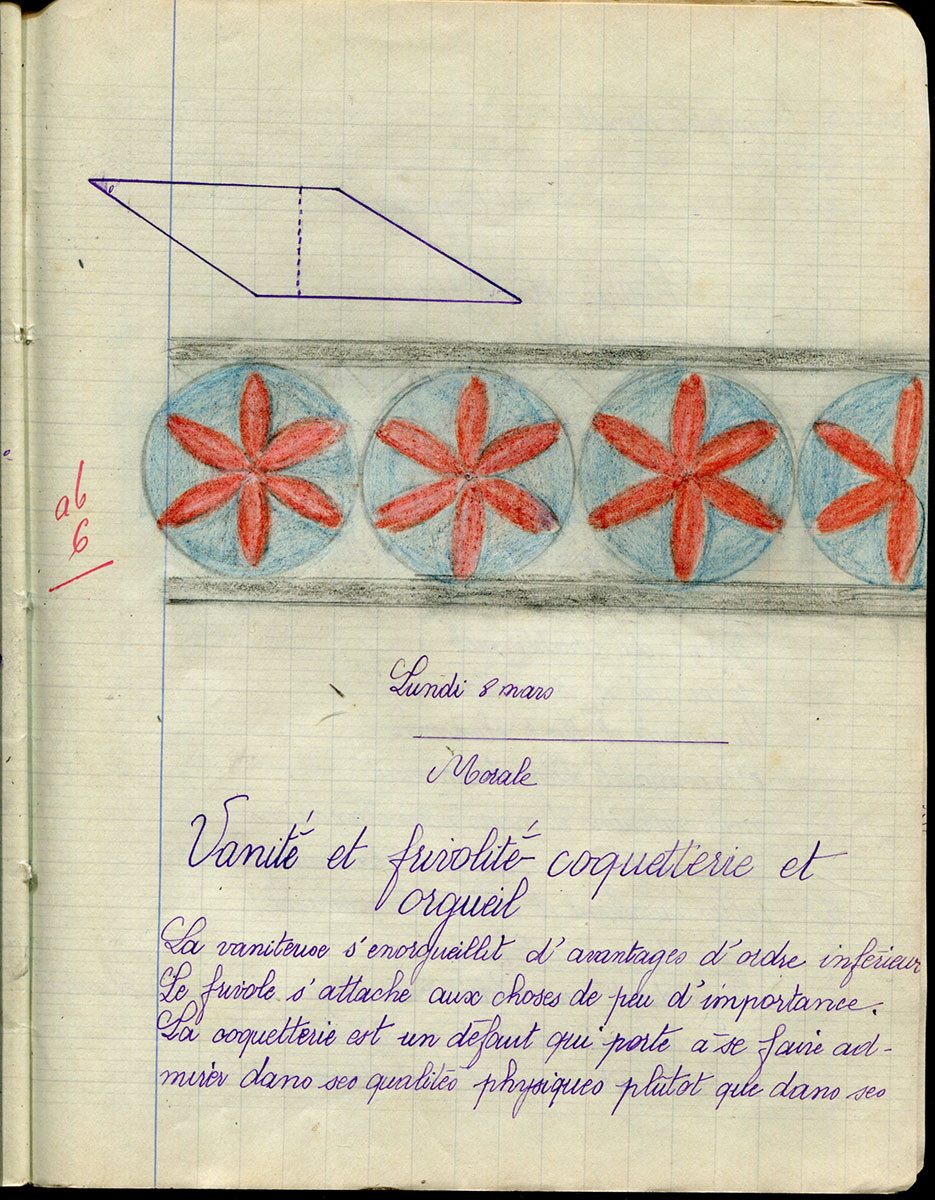 ab
6
Lundi 8 mars
Morale
Vanité et frivolité - coquetterie et
orgueil
La vaniteuse s'enorgueillit d'avantages d'ordre inférieur
Le frivole s'attache aux choses de peu d'importance.
La coquetterie est un défaut qui porte à se faire ad-
mirer dans ses qualités physiques plutôt que dans ses